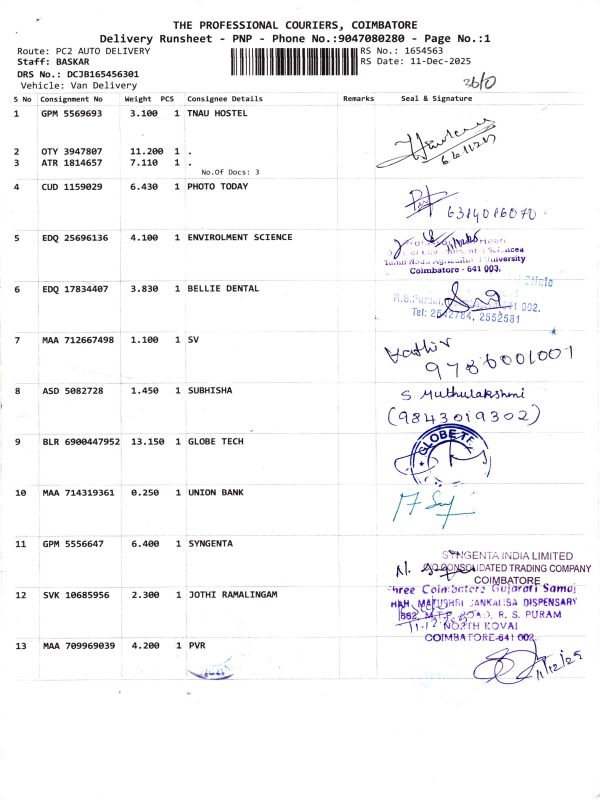 THE PROFESSIONAL COURIERS, COIMBATORE
Delivery Runsheet - PNP - Phone No.:9047080280 - Page No.:1
Route: PC2 AUTO DELIVERY
RS No.: 1654563
Staff: BASKAR
RS Date: 11-Dec-2025
DRS No.: DCJB165456301
Vehicle: Van Delivery
S No Consignment No Weight PCS Consignee Details Remarks Seal & Signature
1 GPM 5569693 3.100 1 TNAU HOSTEL
2 OTY 3947807 11.200 1 .
3 ATR 1814657 7.110 1 .
No.Of Docs: 3
4 CUD 1159029 6.430 1 PHOTO TODAY
6384086070
5 EDQ 25696136 4.100 1 ENVIROLMENT SCIENCE
Tamil Nadu Agricultural University
Coimbatore - 641 003.
6 EDQ 17834407 3.830 1 BELLIE DENTAL
Clinic
R.S.Puram, 641 002.
Tel: 2542784, 2552581
7 MAA 712667498 1.100 1 SV
Kathir
9786001001
8 ASD 5082728 1.450 1 SUBHISHA
S Muthulakshmi
(9843019302)
9 BLR 6900447952 13.150 1 GLOBE TECH
GLOBE TE
10 MAA 714319361 0.250 1 UNION BANK
11 GPM 5556647 6.400 1 SYNGENTA
SYNGENTA INDIA LIMITED
CONSOLIDATED TRADING COMPANY
COIMBATORE
12 SVK 10685956 2.300 1 JOTHI RAMALINGAM
Shree Coimbatore Gujarati Samaj
MATUSHRI JANKALIBA DISPENSARY
662, M.T.P. ROAD, R. S. PURAM
NORTH KOVAI
COIMBATORE-641 002.
13 MAA 709969039 4.200 1 PVR
11/12/25